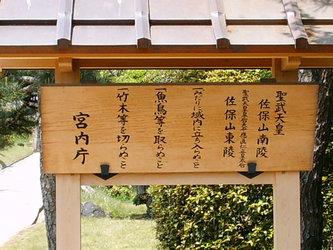 聖武天皇
佐保山南陵
聖武天皇皇后天平應真仁正皇太后
佐保山東陵
一みだりに域内に立ち入らぬこと
一魚鳥等を取らぬこと
一竹木等を切らぬこと
宮内庁